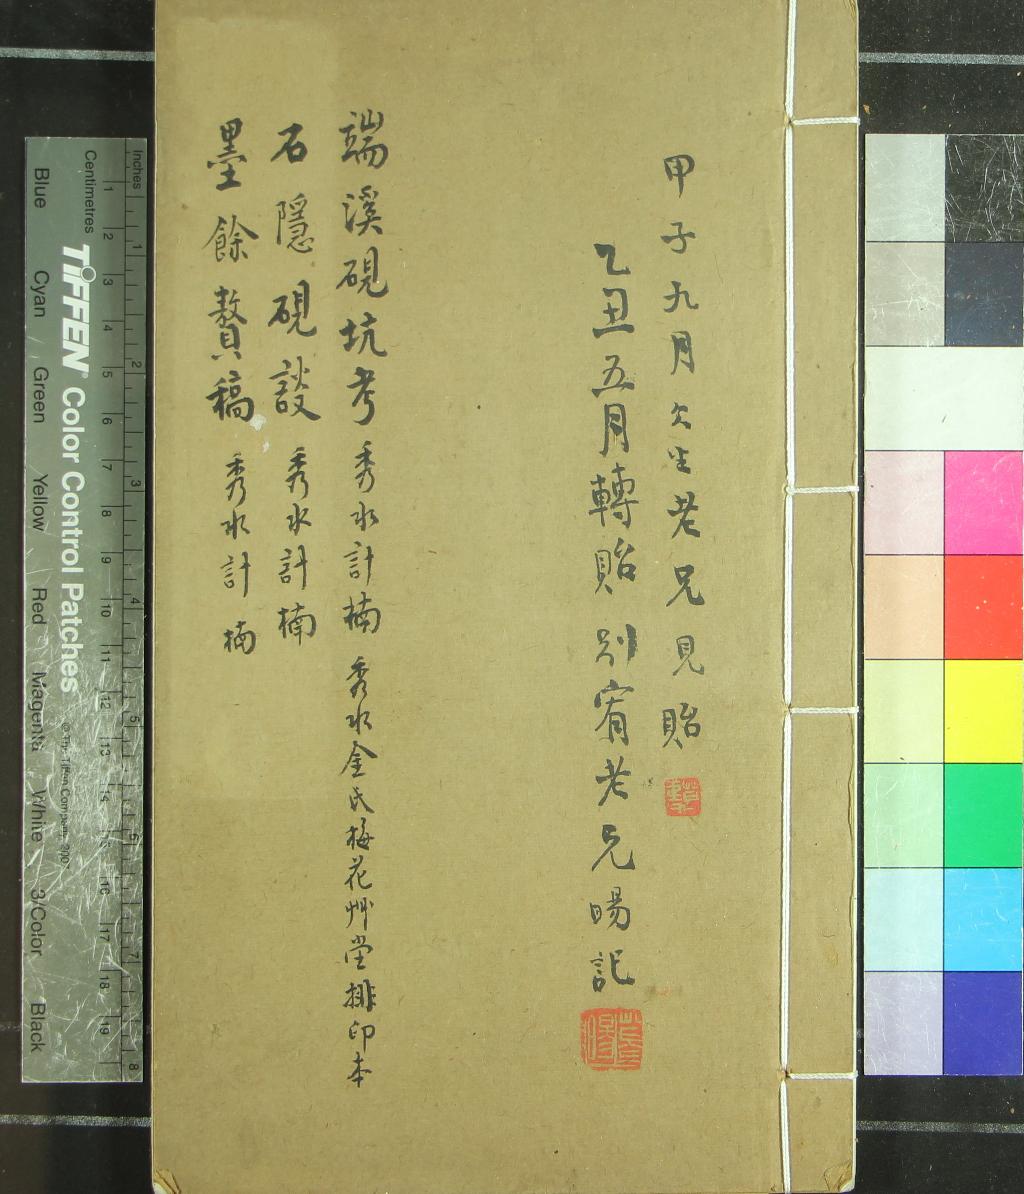 甲子九月欠坐老兄見貽
乙丑五月轉貽別宥老兄暘記
端溪硯坑考 秀水計楠 秀水金氏梅花艸堂排印本
石隱硯談 秀水計楠
墨餘贅稿 秀水計楠
Inches
Centimetres
1 2 3 4 5 6 7 8
1 2 3 4 5 6 7 8 9 10 11 12 13 14 15 16 17 18 19
TIFFEN Color Control Patches
© The Tiffen Company, 200
Blue Cyan Green Yellow Red Magenta White 3/Color Black